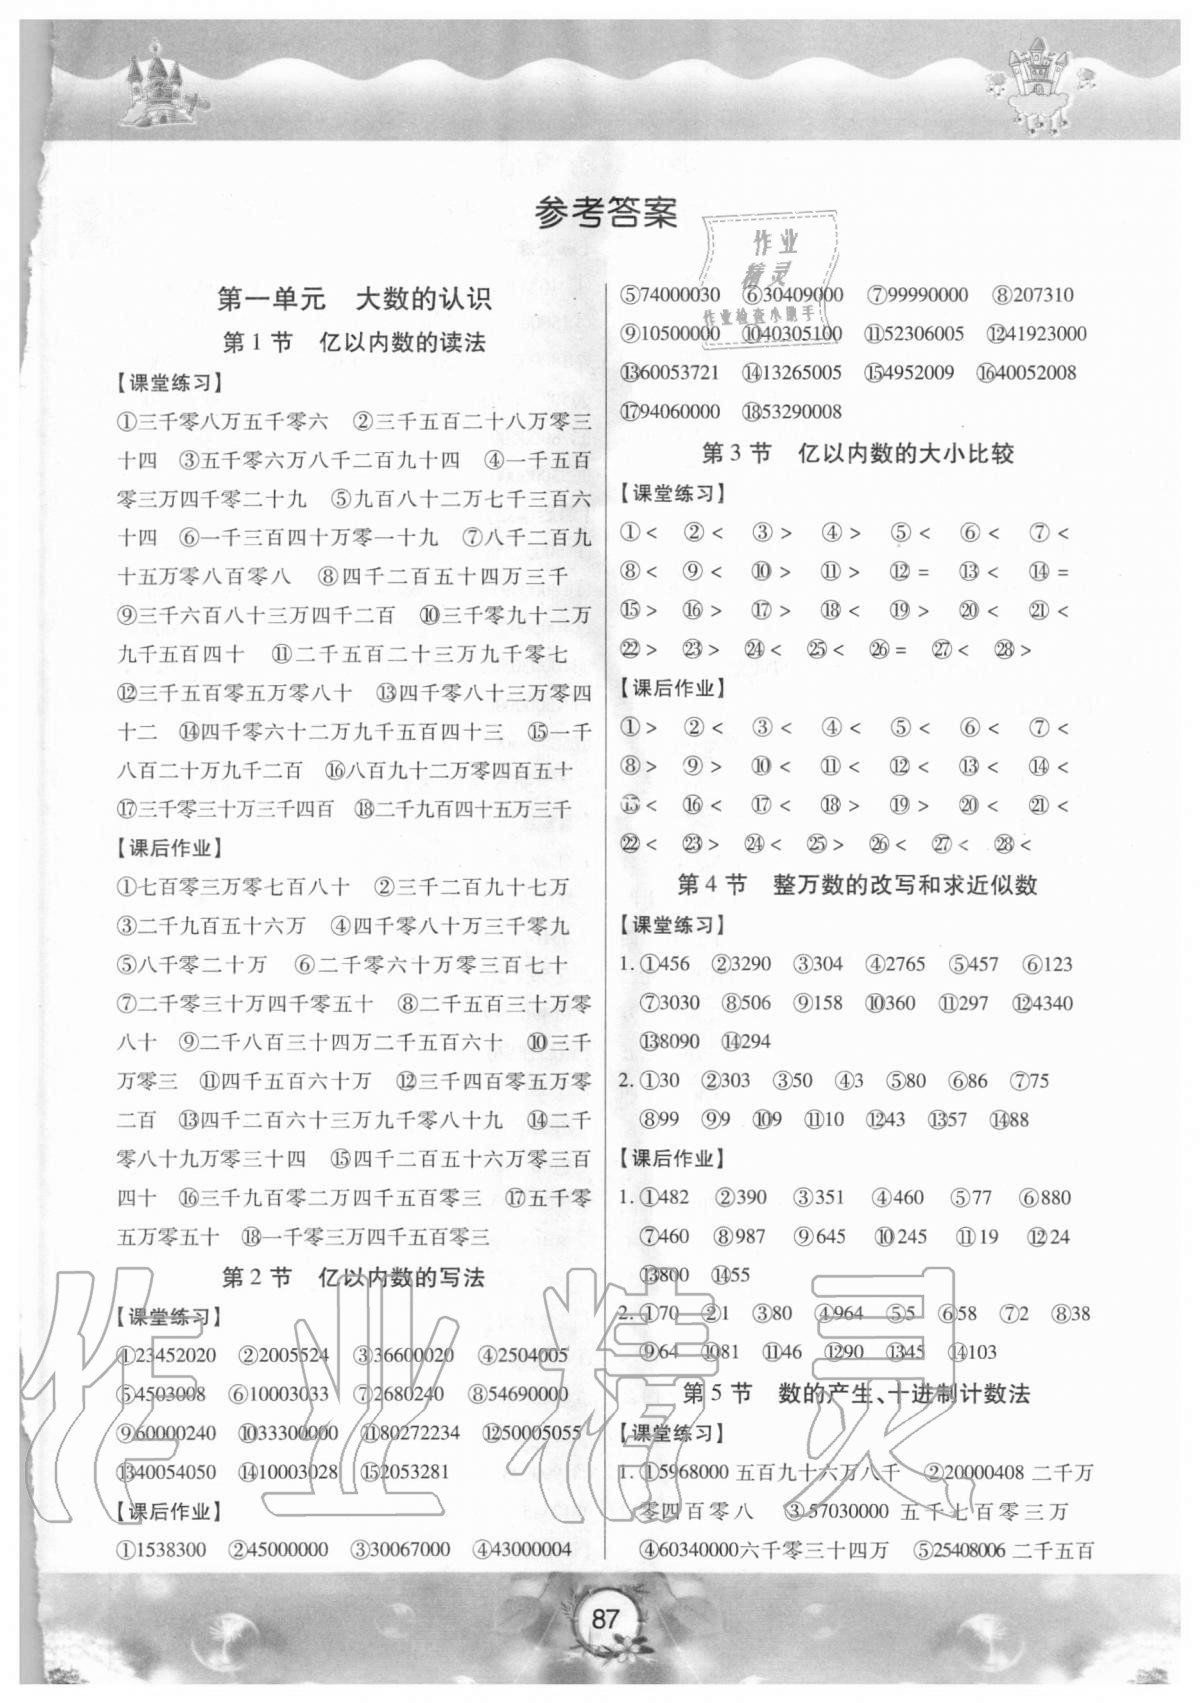 参考答案
作业
精灵
作业检查小助手
第一单元　大数的认识
第1节　亿以内数的读法
【课堂练习】
①三千零八万五千零六　②三千五百二十八万零三
十四　③五千零六万八千二百九十四　④一千五百
零三万四千零二十九　⑤九百八十二万七千三百六
十四　⑥一千三百四十万零一十九　⑦八千二百九
十五万零八百零八　⑧四千二百五十四万三千
⑨三千六百八十三万四千二百　⑩三千零九十二万
九千五百四十　⑪二千五百二十三万九千零七
⑫三千五百零五万零八十　⑬四千零八十三万零四
十二　⑭四千零六十二万九千五百四十三　⑮一千
八百二十万九千二百　⑯八百九十二万零四百五十
⑰三千零三十万三千四百　⑱二千九百四十五万三千
【课后作业】
①七百零三万零七百八十　②三千二百九十七万
③二千九百五十六万　④四千零八十万三千零九
⑤八千零二十万　⑥二千零六十万零三百七十
⑦二千零三十万四千零五十　⑧二千五百三十万零
八十　⑨二千八百三十四万二千五百六十　⑩三千
万零三　⑪四千五百六十万　⑫三千四百零五万零
二百　⑬四千二百六十三万九千零八十九　⑭二千
零八十九万零三十四　⑮四千二百五十六万零三百
四十　⑯三千九百零二万四千五百零三　⑰五千零
五万零五十　⑱一千零三万四千五百零三
第2节　亿以内数的写法
【课堂练习】
①23452020　②2005524　③36600020　④2504005
⑤4503008　⑥10003033　⑦2680240　⑧54690000
⑨60000240　⑩33300000　⑪80272234　⑫50005055
⑬40054050　⑭10003028　⑮2053281
【课后作业】
①1538300　②45000000　③30067000　④43000004
⑤74000030　⑥30409000　⑦99990000　⑧207310
⑨10500000　⑩40305100　⑪52306005　⑫41923000
⑬60053721　⑭13265005　⑮4952009　⑯40052008
⑰94060000　⑱53290008
第3节　亿以内数的大小比较
【课堂练习】
①<　②<　③>　④>　⑤<　⑥<　⑦<
⑧<　⑨<　⑩>　⑪>　⑫=　⑬<　⑭=
⑮>　⑯>　⑰>　⑱<　⑲>　⑳<　㉑<
㉒>　㉓>　㉔<　㉕<　㉖=　㉗<　㉘>
【课后作业】
①>　②<　③<　④<　⑤<　⑥<　⑦<
⑧>　⑨>　⑩<　⑪<　⑫<　⑬<　⑭<
⑮<　⑯<　⑰<　⑱>　⑲>　⑳<　㉑<
㉒<　㉓>　㉔>　㉕>　㉖<　㉗<　㉘<
第4节　整万数的改写和求近似数
【课堂练习】
1. ①456　②3290　③304　④2765　⑤457　⑥123
⑦3030　⑧506　⑨158　⑩360　⑪297　⑫4340
⑬8090　⑭294
2. ①30　②303　③50　④3　⑤80　⑥86　⑦75
⑧99　⑨9　⑩9　⑪10　⑫43　⑬57　⑭88
【课后作业】
1. ①482　②390　③351　④460　⑤77　⑥880
⑦460　⑧987　⑨645　⑩245　⑪19　⑫24
⑬800　⑭55
2. ①70　②1　③80　④964　⑤5　⑥58　⑦2　⑧38
⑨64　⑩81　⑪46　⑫90　⑬45　⑭103
第5节　数的产生、十进制计数法
【课堂练习】
1. ①5968000 五百九十六万八千　②20000408 二千万
零四百零八　③57030000 五千七百零三万
④60340000六千零三十四万　⑤25408006 二千五百
作业精灵
87